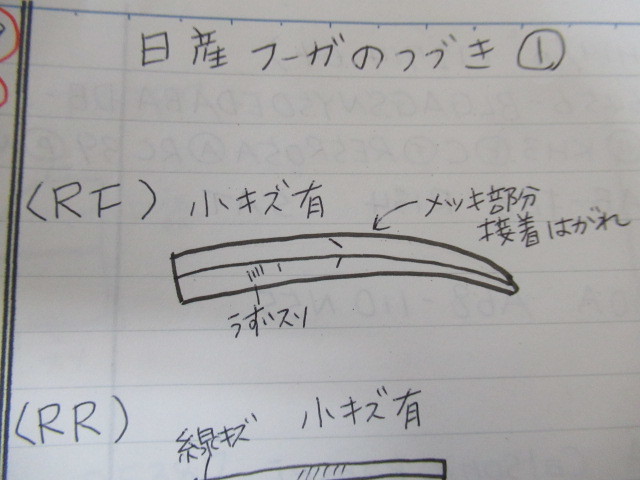 日産フーガのつづき①
(RF) 小キズ有
メッキ部分
接着はがれ
うすいスリ
(RR) 小キズ有
線キズ